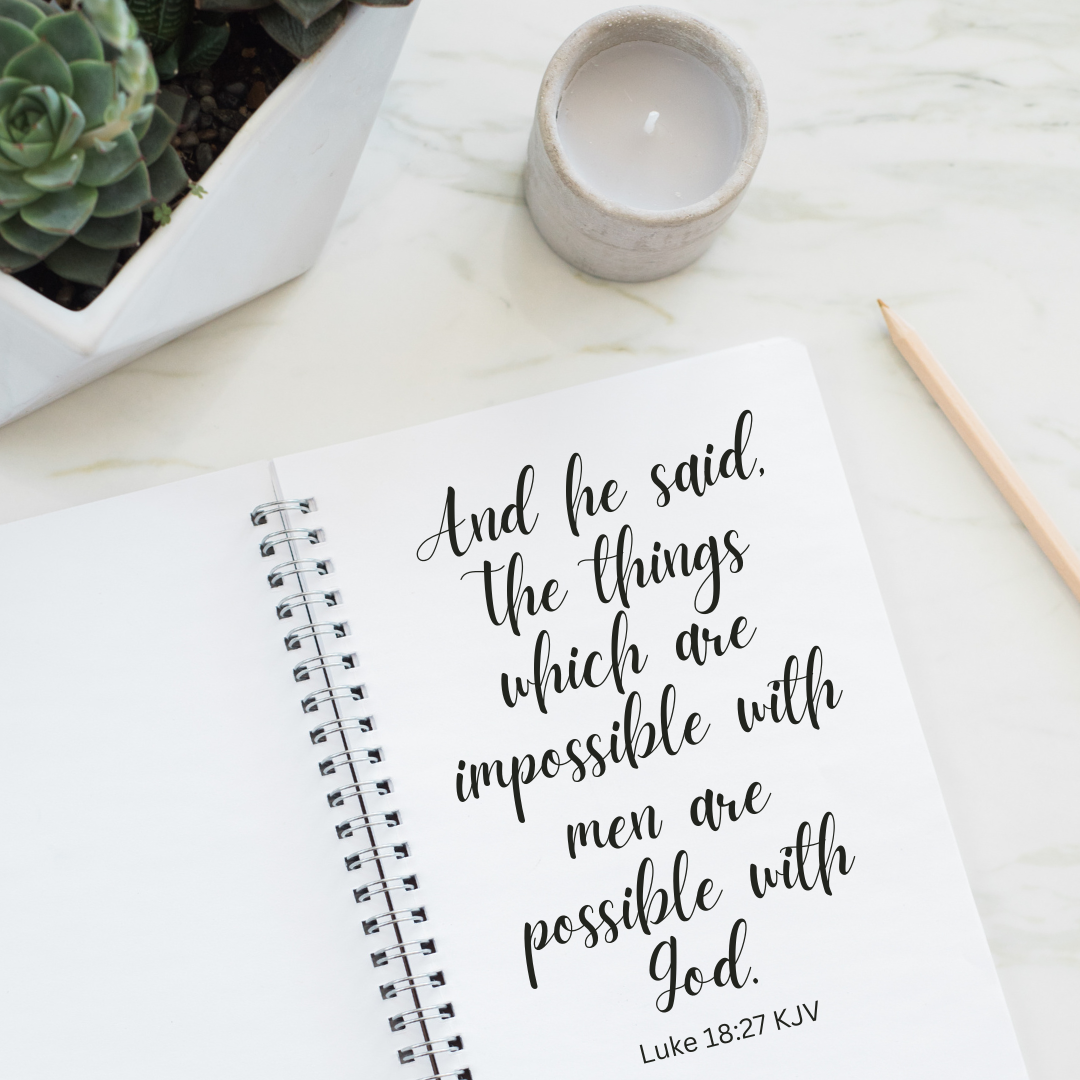 And he said,
the things
which are
impossible with
men are
possible with
God.
Luke 18:27 KJV